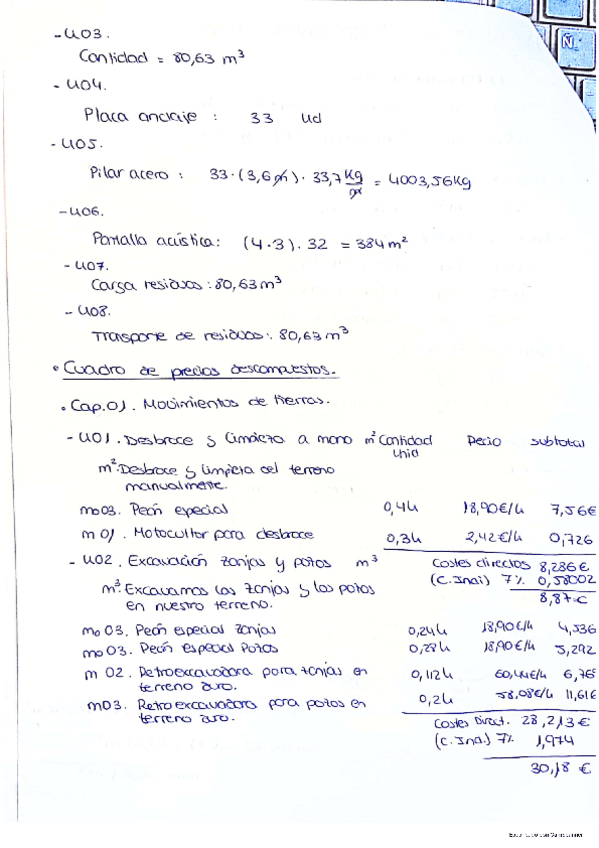 - U03.
Cantidad = 80,63 m³
- U04.
Placa anclaje : 33 Ud
- U05.
Pilar acero : 33·(3,6 m)·33,7 Kg/m = 4003,56Kg
- U06.
Pantalla acústica: (4·3)·32 = 384m²
- U07.
Carga residuos: 80,63m³
- U08.
Trasporte de residuos: 80,63 m³
• Cuadro de precios descompuestos.
• Cap.01. Movimientos de tierras.
- U01. Desbroce y limpieza a mano m² Cantidad Unid Pecio subtotal
m²: Desbroce y limpieza del terreno
manualmente.
mo03. Peón especial 0,4h 18,90€/h 7,56€
m01. Motocultor para desbroce 0,3h 2,42€/h 0,726
- U02. Excavación zanjas y pozos m³ Costes directos 8,286€
m³: Excavamos las zanjas y los pozos (C.Indi) 7% 0,58002
en nuestro terreno. 8,87€
mo03. Peón especial zanjas 0,24h 18,90€/h 4,536
mo03. Peón especial Pozos 0,28h 18,90€/h 5,292
m02. Retroexcavadora para zanjas en 0,112h 60,44€/h 6,769
terreno duro.
m03. Retroexcavadora para pozos en 0,2h 58,08€/h 11,616
terreno duro.
Costes Direct. 28,213€
(C.Ind.) 7% 1,974
30,18 €
Ñ